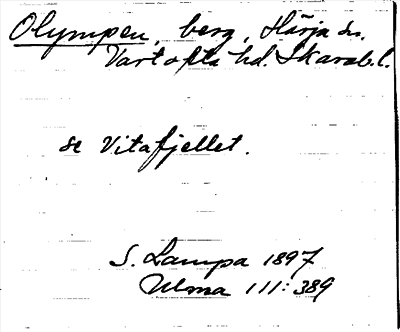 Olympen, berg, Härja sn,
Vartofta hd. Skarab. l.
se Vitafjellet.
S. Lampa 1897
Ulma 111:389